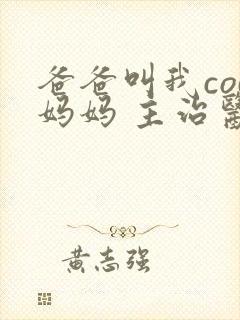 爸爸叫我co
妈妈 主治
黄志强